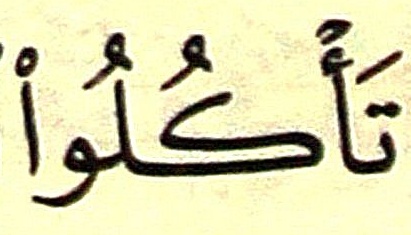 تَأْكُلُواْ